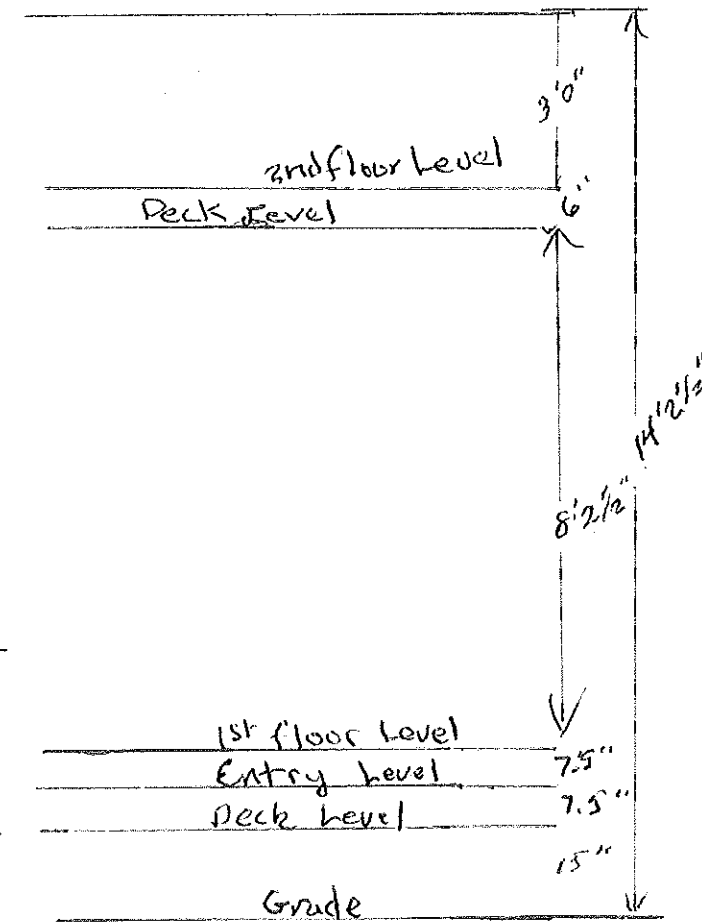 3'0"
2nd floor Level
6"
Deck Level
14'2 1/2"
8'2 1/2"
1st floor Level
7.5"
Entry Level
7.5"
Deck Level
15"
Grade